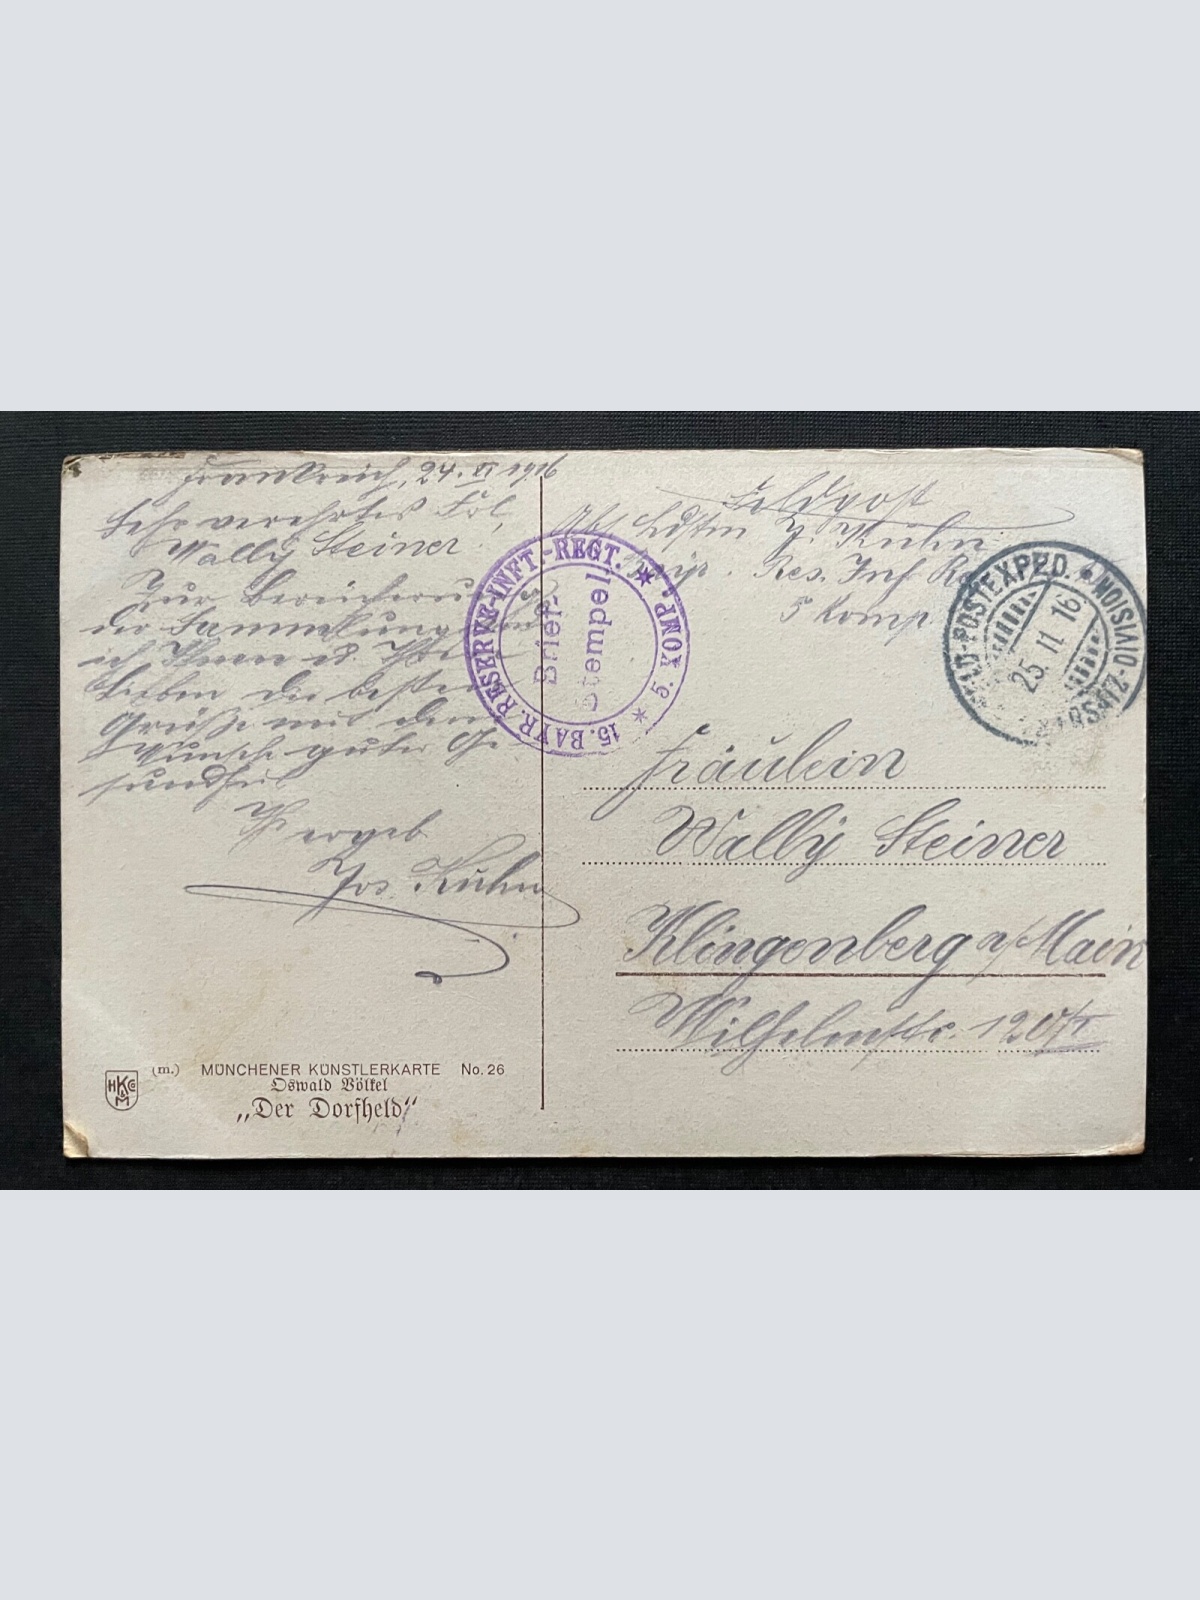 Frankreich, 24. XI 1916
Sehr verehrtes Frl,
Wally Steiner!
Zur Bereicherung
der Sammlung
ich Ihnen u. Ihren
Lieben die besten
Grüße mit dem
Wunsche guter Ge-
sundheit
Ihr ergeb
Jos. Kuhn
Feldpost
Abs. Ldstm J. Kuhn
15 bayr. Res. Inf Re
5 Komp.
15. BAYR. RESERVE-INFT.-REGT. * 5. KOMP. *
Brief-
stempel
FELD-POSTEXPED. * ERSATZ-DIVISION
25. 11. 16
Fräulein
Wally Steiner
Klingenberg a/Main
Wilhelmstr. 120/I
HKCo
M
(m.) MÜNCHENER KÜNSTLERKARTE No. 26
Oswald Völkel
„Der Dorfheld“